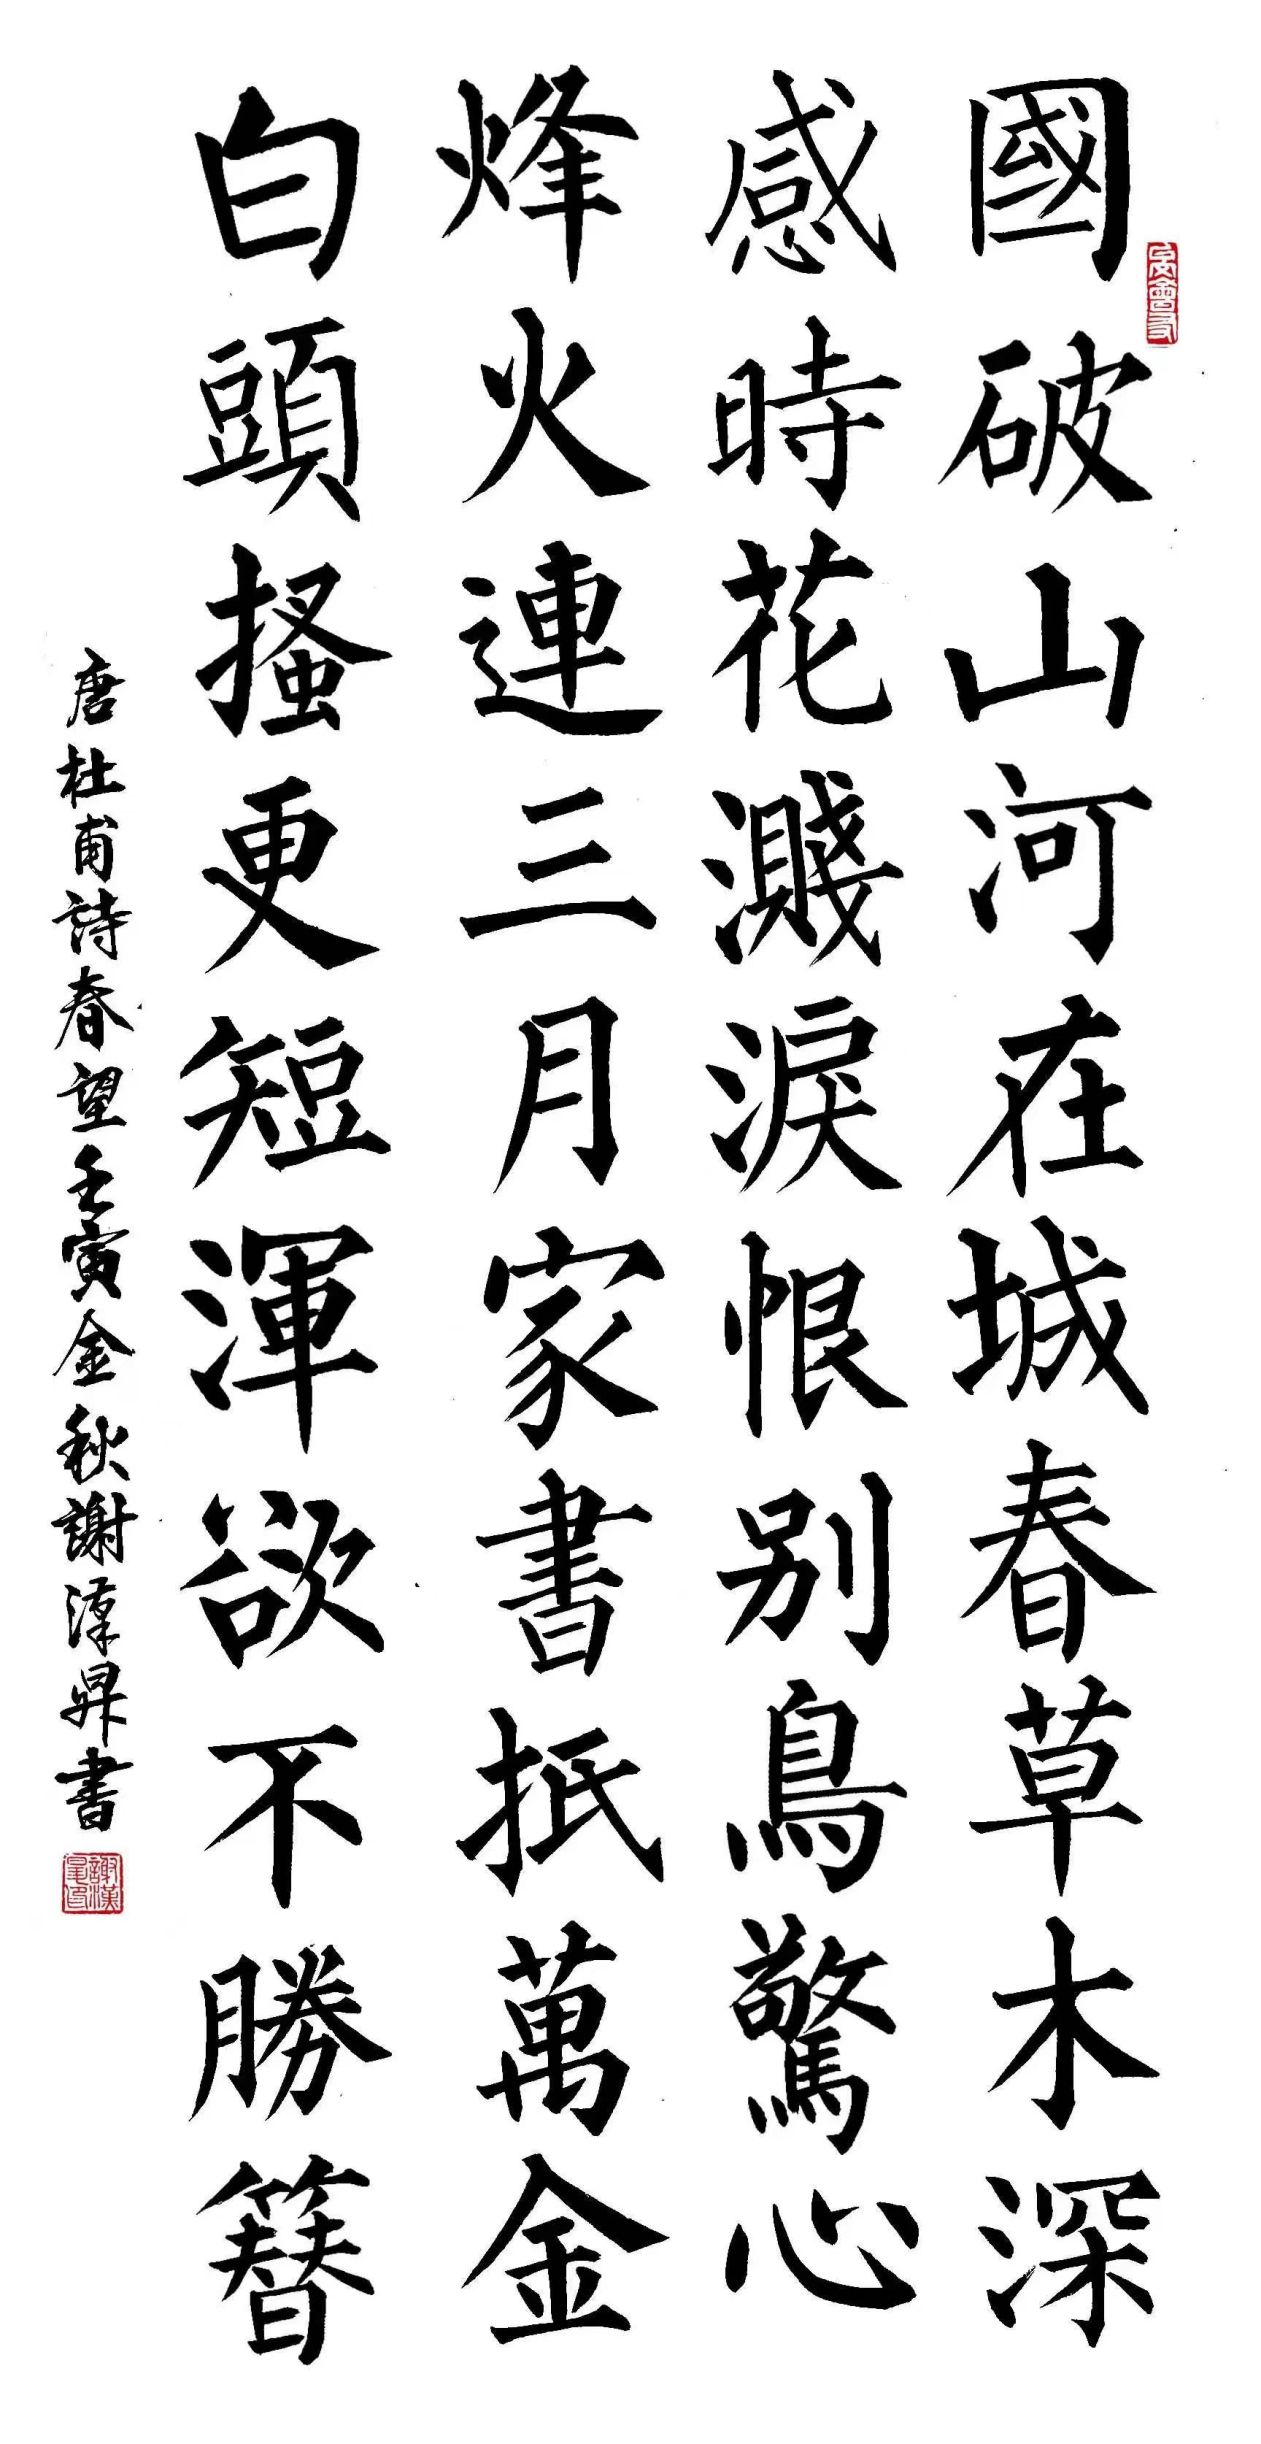 國破山河在城春草木深
感時花濺淚恨别鳥驚心
烽火連三月家書抵萬金
白頭搔更短渾欲不勝簪
唐杜甫詩春望壬寅金秋謝漢昇書